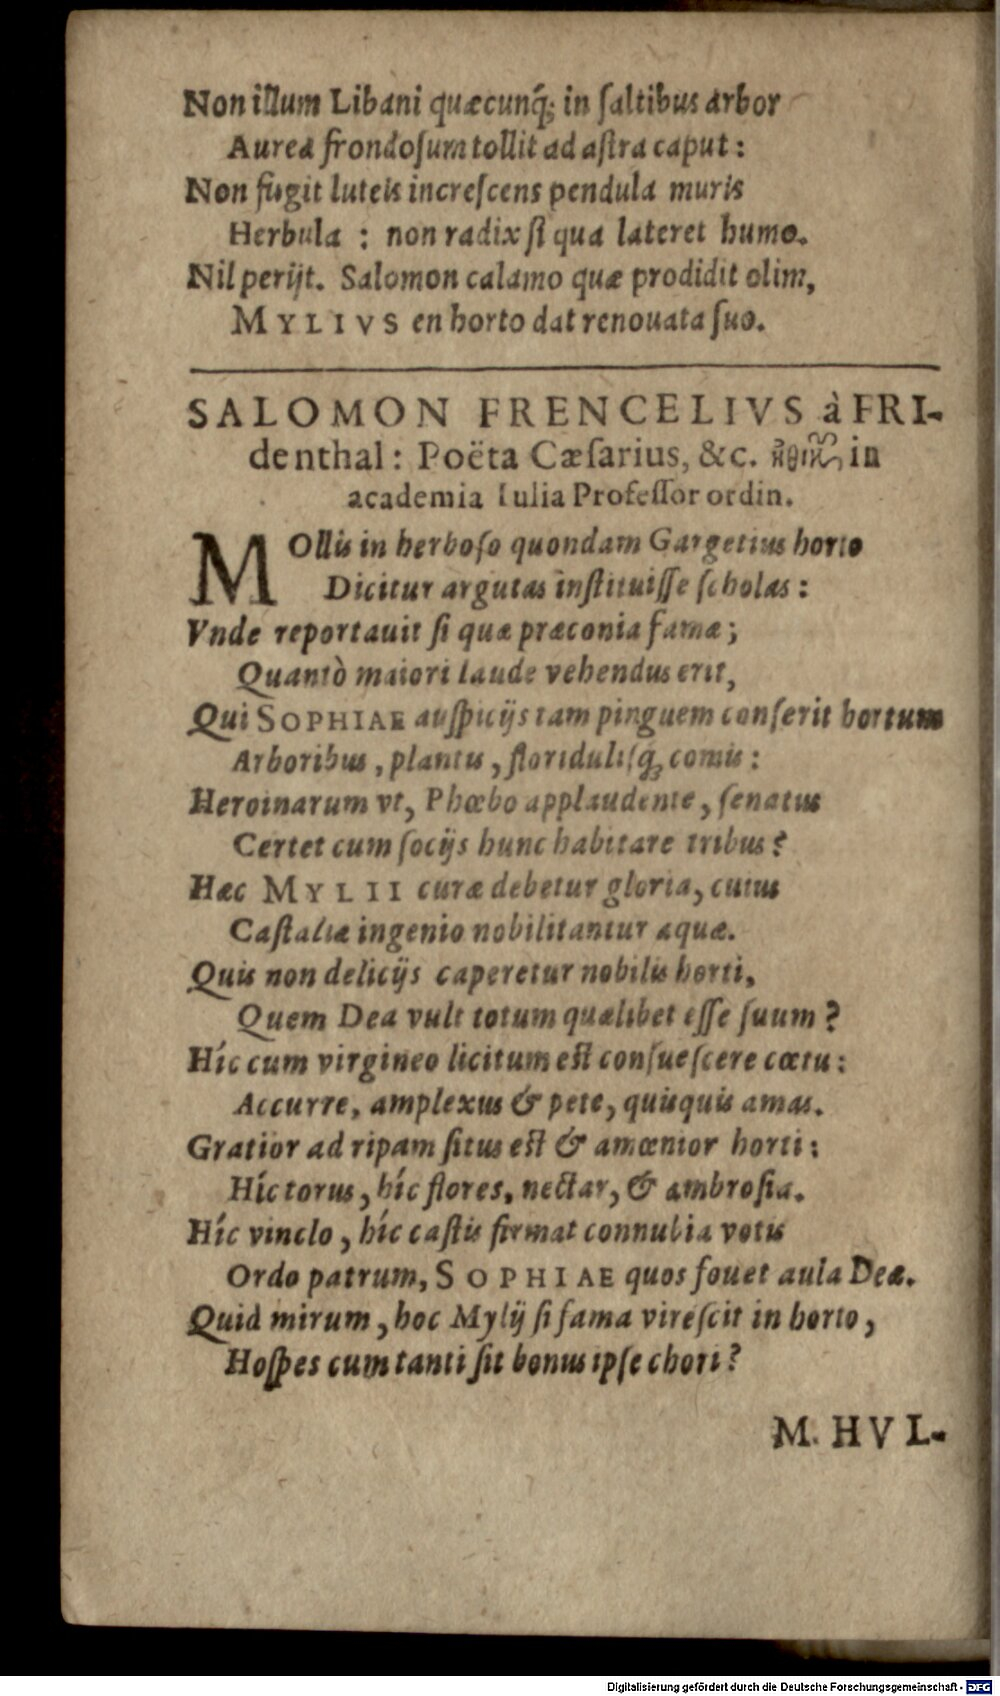 Non illum Libani quæcunq́; in ſaltibus arbor
Aurea frondoſum tollit ad aſtra caput:
Non fugit luteis increſcens pendula muris
Herbula : non radix ſi qua lateret humo.
Nil perijt. Salomon calamo quæ prodidit olim,
MYLIVS en horto dat renouata ſuo.
SALOMON FRENCELIVS à FRI-
denthal: Poëta Cæſarius, &c. in
academia Iulia Profeſſor ordin.
MOllis in herboſo quondam Gargetius horto
Dicitur argutas inſtituiſſe ſcholas:
Vnde reportauit ſi quæ præconia famæ;
Quantò maiori laude vehendus erit,
Qui SOPHIAE auſpicijs tam pinguem conſerit hortum
Arboribus, plantis, floridulisq́; comis:
Heroinarum vt, Phœbo applaudente, ſenatus
Certet cum ſocijs hunc habitare tribus?
Hæc MYLII curæ debetur gloria, cuius
Caſtaliæ ingenio nobilitantur aquæ.
Quis non delicijs caperetur nobilis horti,
Quem Dea vult totum quælibet eſſe ſuum?
Híc cum virgineo licitum eſt conſueſcere cœtu:
Accurre, amplexus & pete, quisquis amas.
Gratior ad ripam ſitus eſt & amœnior horti:
Híc torus, híc flores, nectar, & ambroſia.
Híc vinclo, híc caſtis firmat connubia votis
Ordo patrum, SOPHIAE quos fouet aula Deæ.
Quid mirum, hoc Mylij ſi fama vireſcit in horto,
Hoſpes cum tanti ſit bonus ipſe chori?
M. HVL-
Digitalisierung gefördert durch die Deutsche Forschungsgemeinschaft - DFG